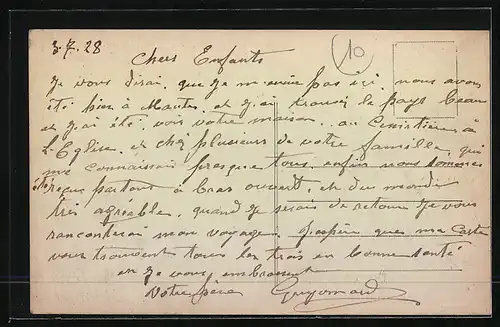 3.7.28
10
Chers Enfants
Je vous dirai, que je m'ennuie pas ici, nous avons
été bien à Mantes, et j'ai trouvé le pays beau
et j'ai été, voir votre maison, au Cimistière à
L'Eglise, et chez plusieurs de votre famille, qui
me connaissait presque tous enfin nous sommes
été reçue partout à bras ouvert, et du monde
très agréable, quand je serais de retour je vous
ranconterai mon voyage, j'espère ques ma Carte
vous trouveront tous les trois en bonne santé
en je vous embrassent
Votre père Guyomard